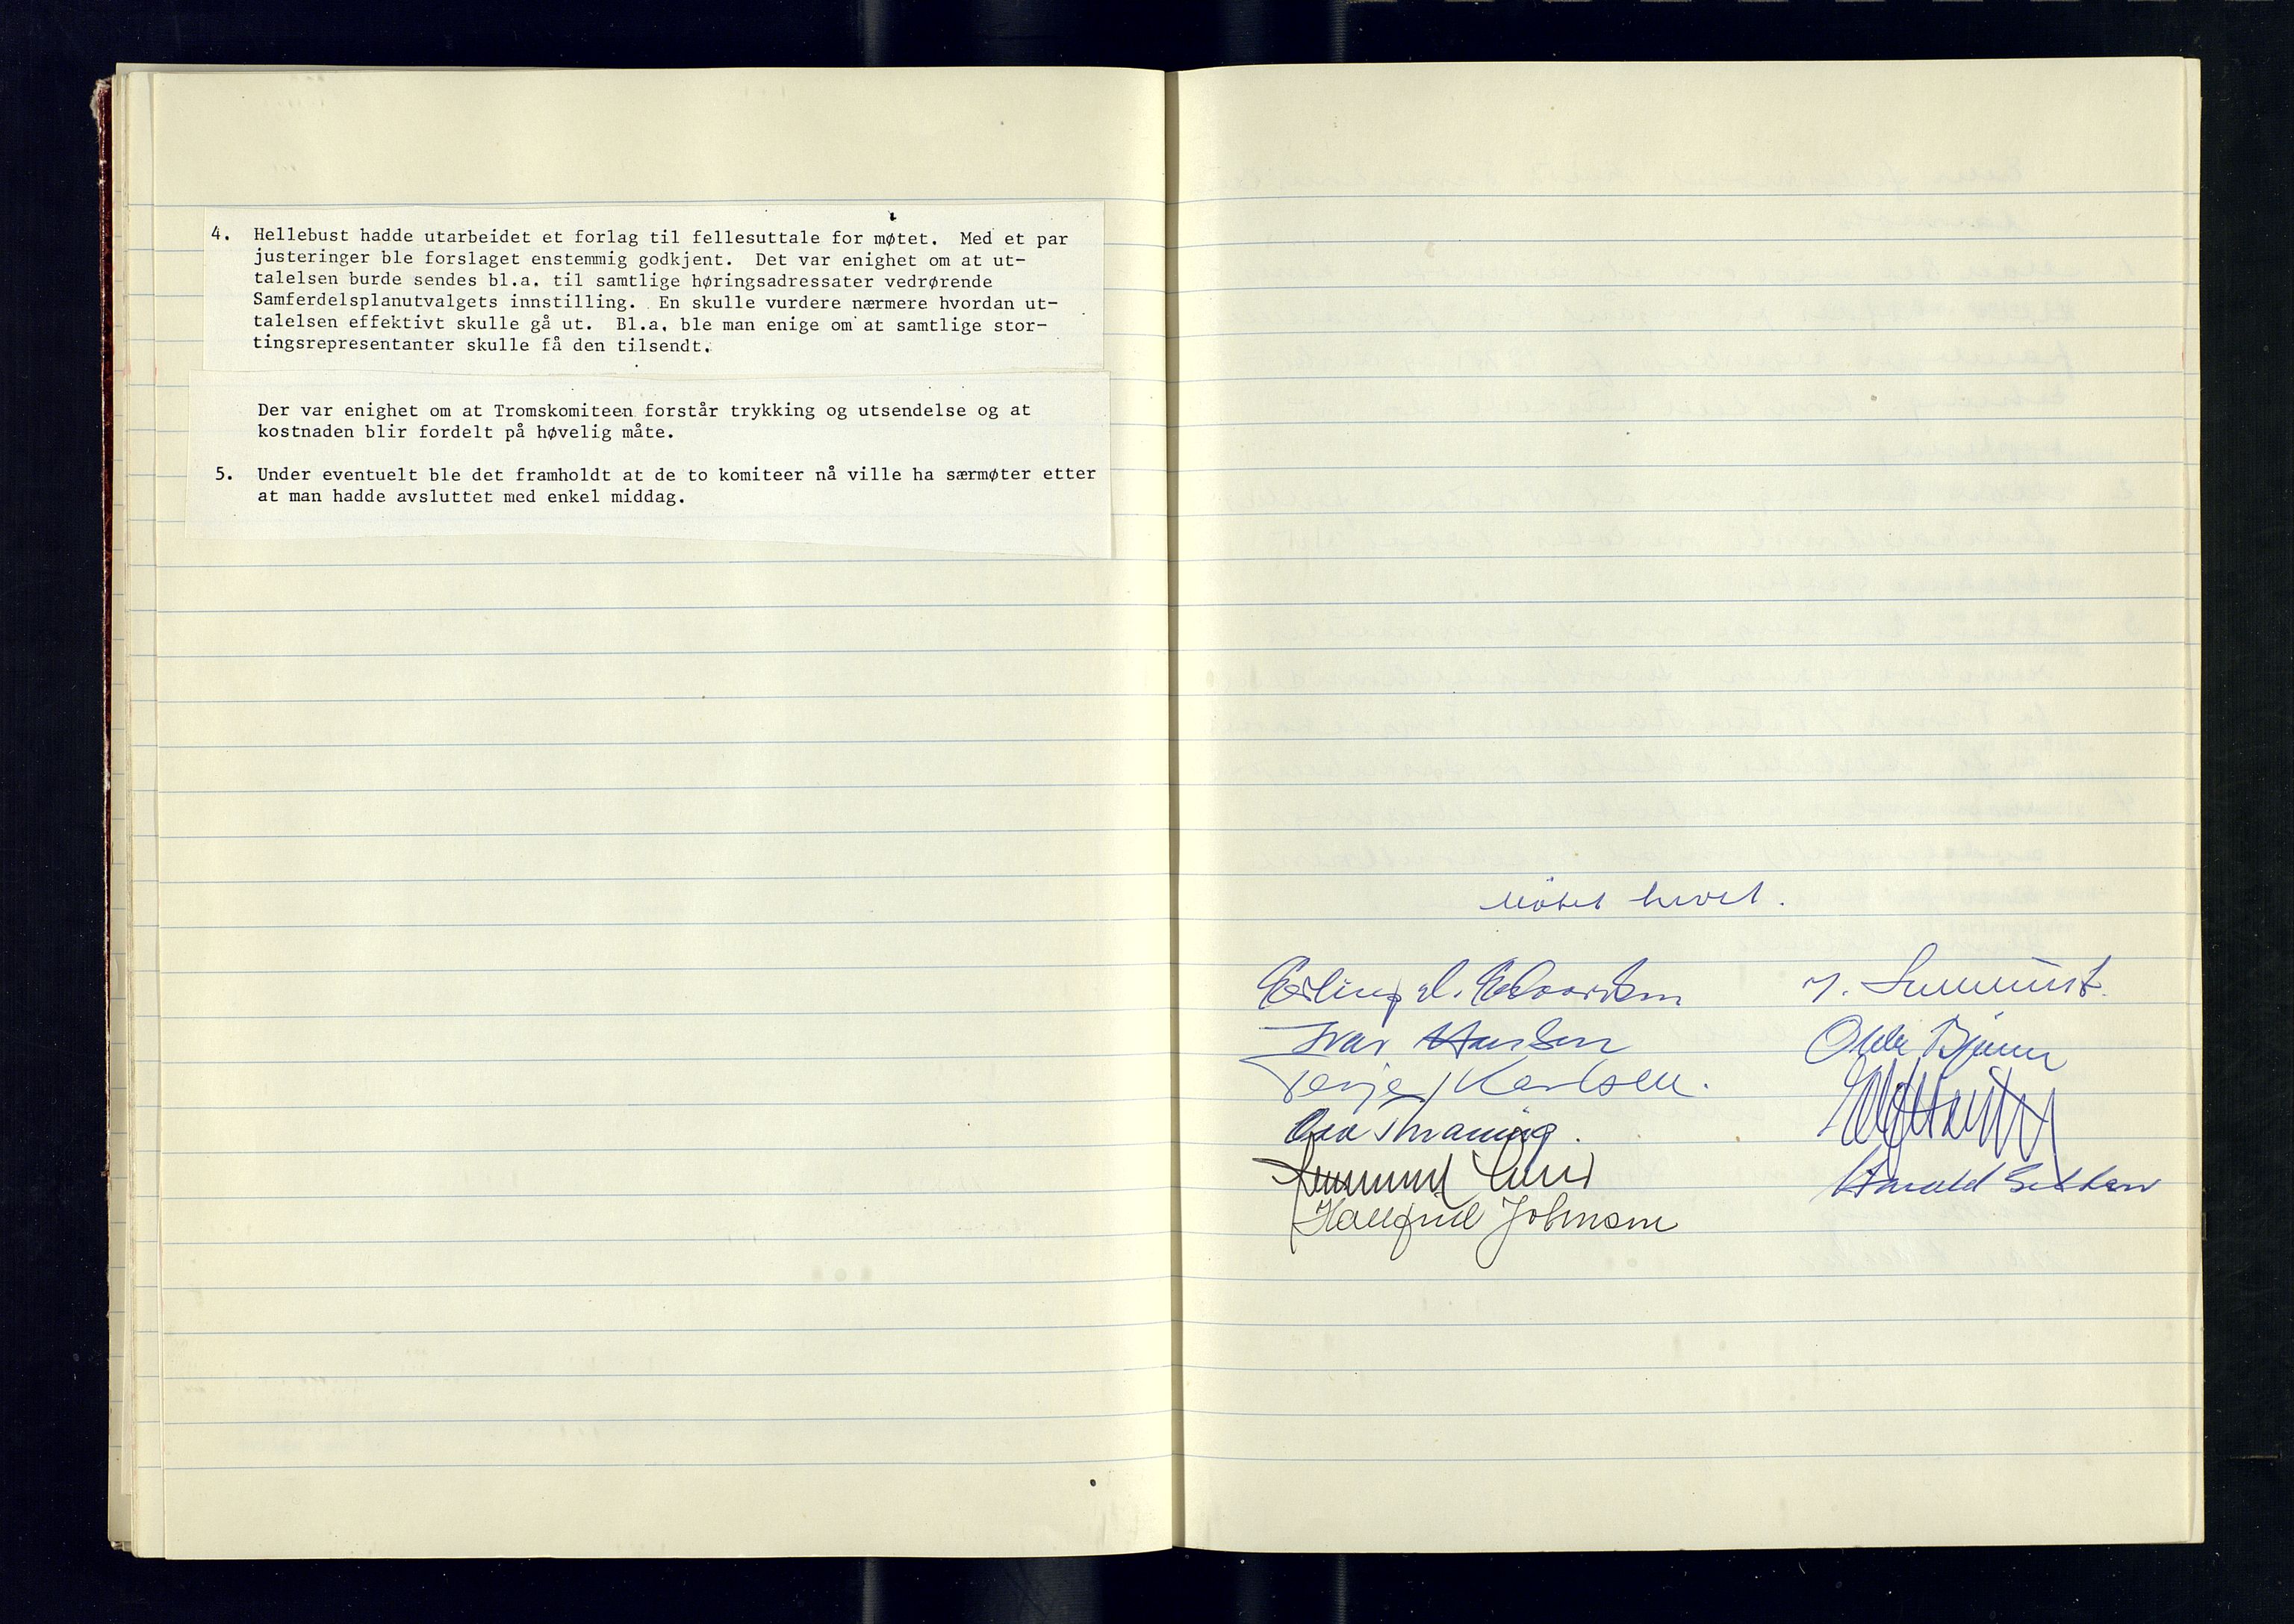 4. Hellebust hadde utarbeidet et forlag til fellesuttale for møtet. Med et par
justeringer ble forslaget enstemmig godkjent. Det var enighet om at ut-
talelsen burde sendes bl.a. til samtlige høringsadressater vedrørende
Samferdelsplanutvalgets innstilling. En skulle vurdere nærmere hvordan ut-
talelsen effektivt skulle gå ut. Bl.a. ble man enige om at samtlige stor-
tingsrepresentanter skulle få den tilsendt.
Der var enighet om at Tromskomiteen forstår trykking og utsendelse og at
kostnaden blir fordelt på høvelig måte.
5. Under eventuelt ble det framholdt at de to komiteer nå ville ha særmøter etter
at man hadde avsluttet med enkel middag.
Møtet hevet.
Ivar Hansen
Terje Karlsen.
Lund
Johnsen
Harald